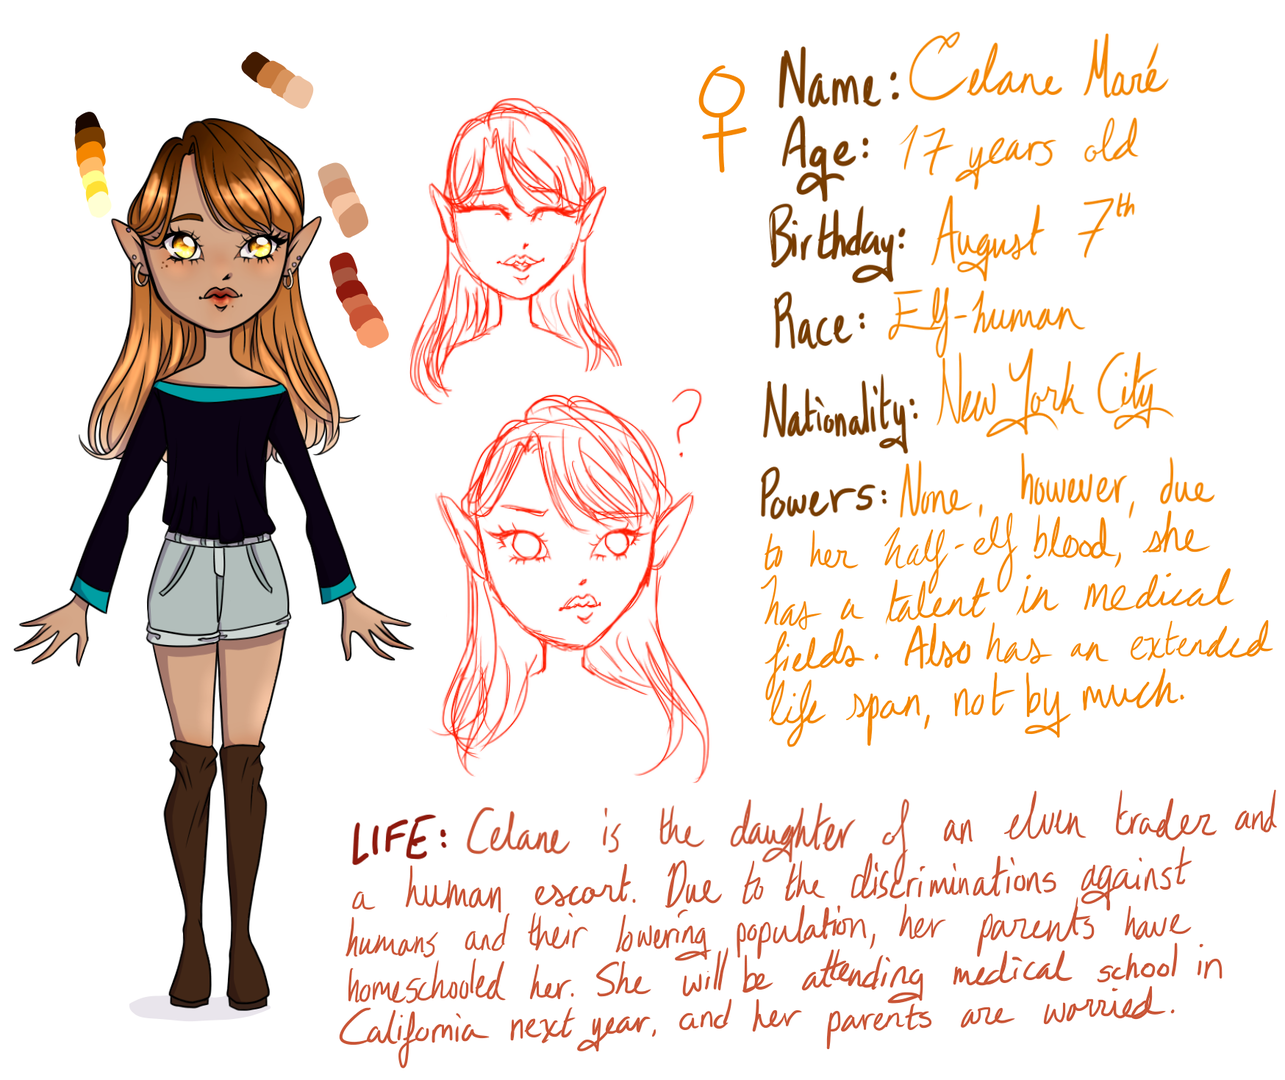 ♀ Name: Celane Maré
Age: 17 years old
Birthday: August 7th
Race: Elf-human
Nationality: New York City
Powers: None, however, due
to her half-elf blood, she
has a talent in medical
fields. Also has an extended
life span, not by much.
?
LIFE: Celane is the daughter of an elven trader and
a human escort. Due to the discriminations against
humans and their lowering population, her parents have
homeschooled her. She will be attending medical school in
California next year, and her parents are worried.